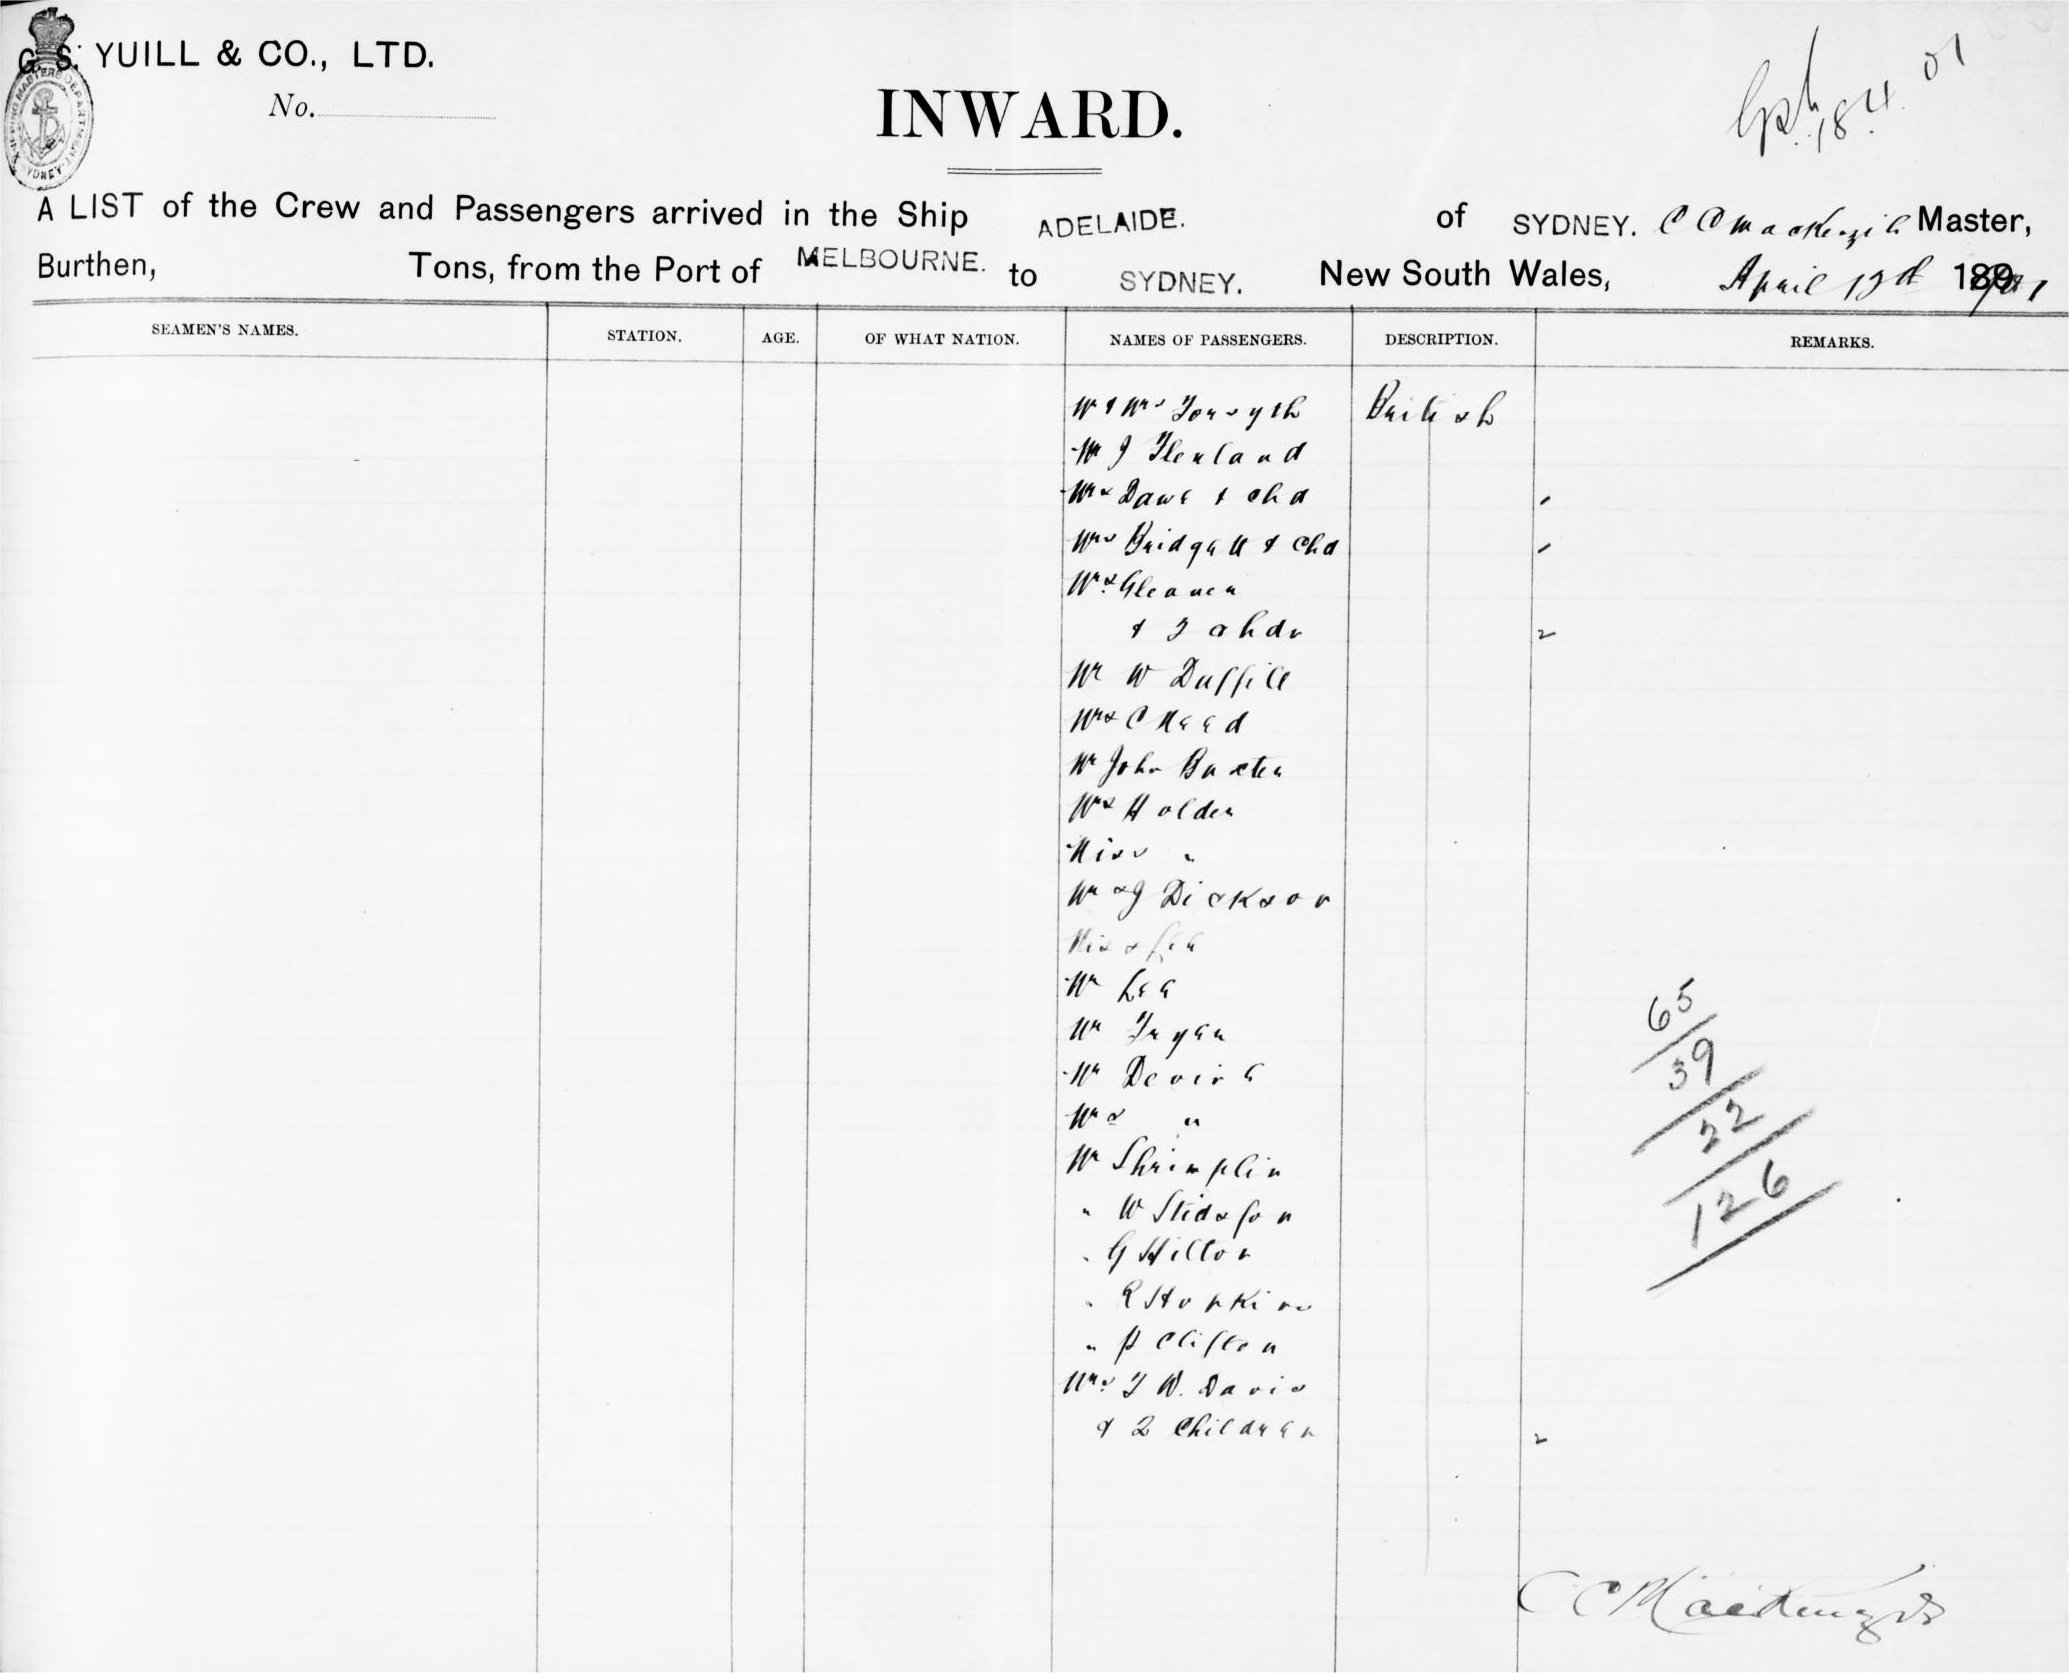 G. S. YUILL & CO., LTD.
No.
INWARD.
18.4.01
SHIPPING MASTERS DEPARTMENT
SYDNEY
A LIST of the Crew and Passengers arrived in the Ship ADELAIDE. of SYDNEY. C C Mackenzie Master,
Burthen, Tons, from the Port of MELBOURNE. to SYDNEY. New South Wales, April 1901
SEAMEN'S NAMES. STATION. AGE. OF WHAT NATION. NAMES OF PASSENGERS. DESCRIPTION. REMARKS.
Mr & Mrs Forsyth British
Mr J
Mrs Dawe & chd
Mrs & Chd
Mrs Gleaner
& 3 chdn 2
Mr W Duffill
Mrs C Reed
Mr John Baxter
Mrs Holder
Miss "
Mrs J Dickson
Miss Lee
Mr Lee
Mr Fryer
Mr Devine
Mrs "
Mr Shrimplin
" W
" G Hilton
" R Hopkins
" P Clifton
Mrs F W. Davis
& 2 Children 2
65
39
22
126
C C Mackenzie